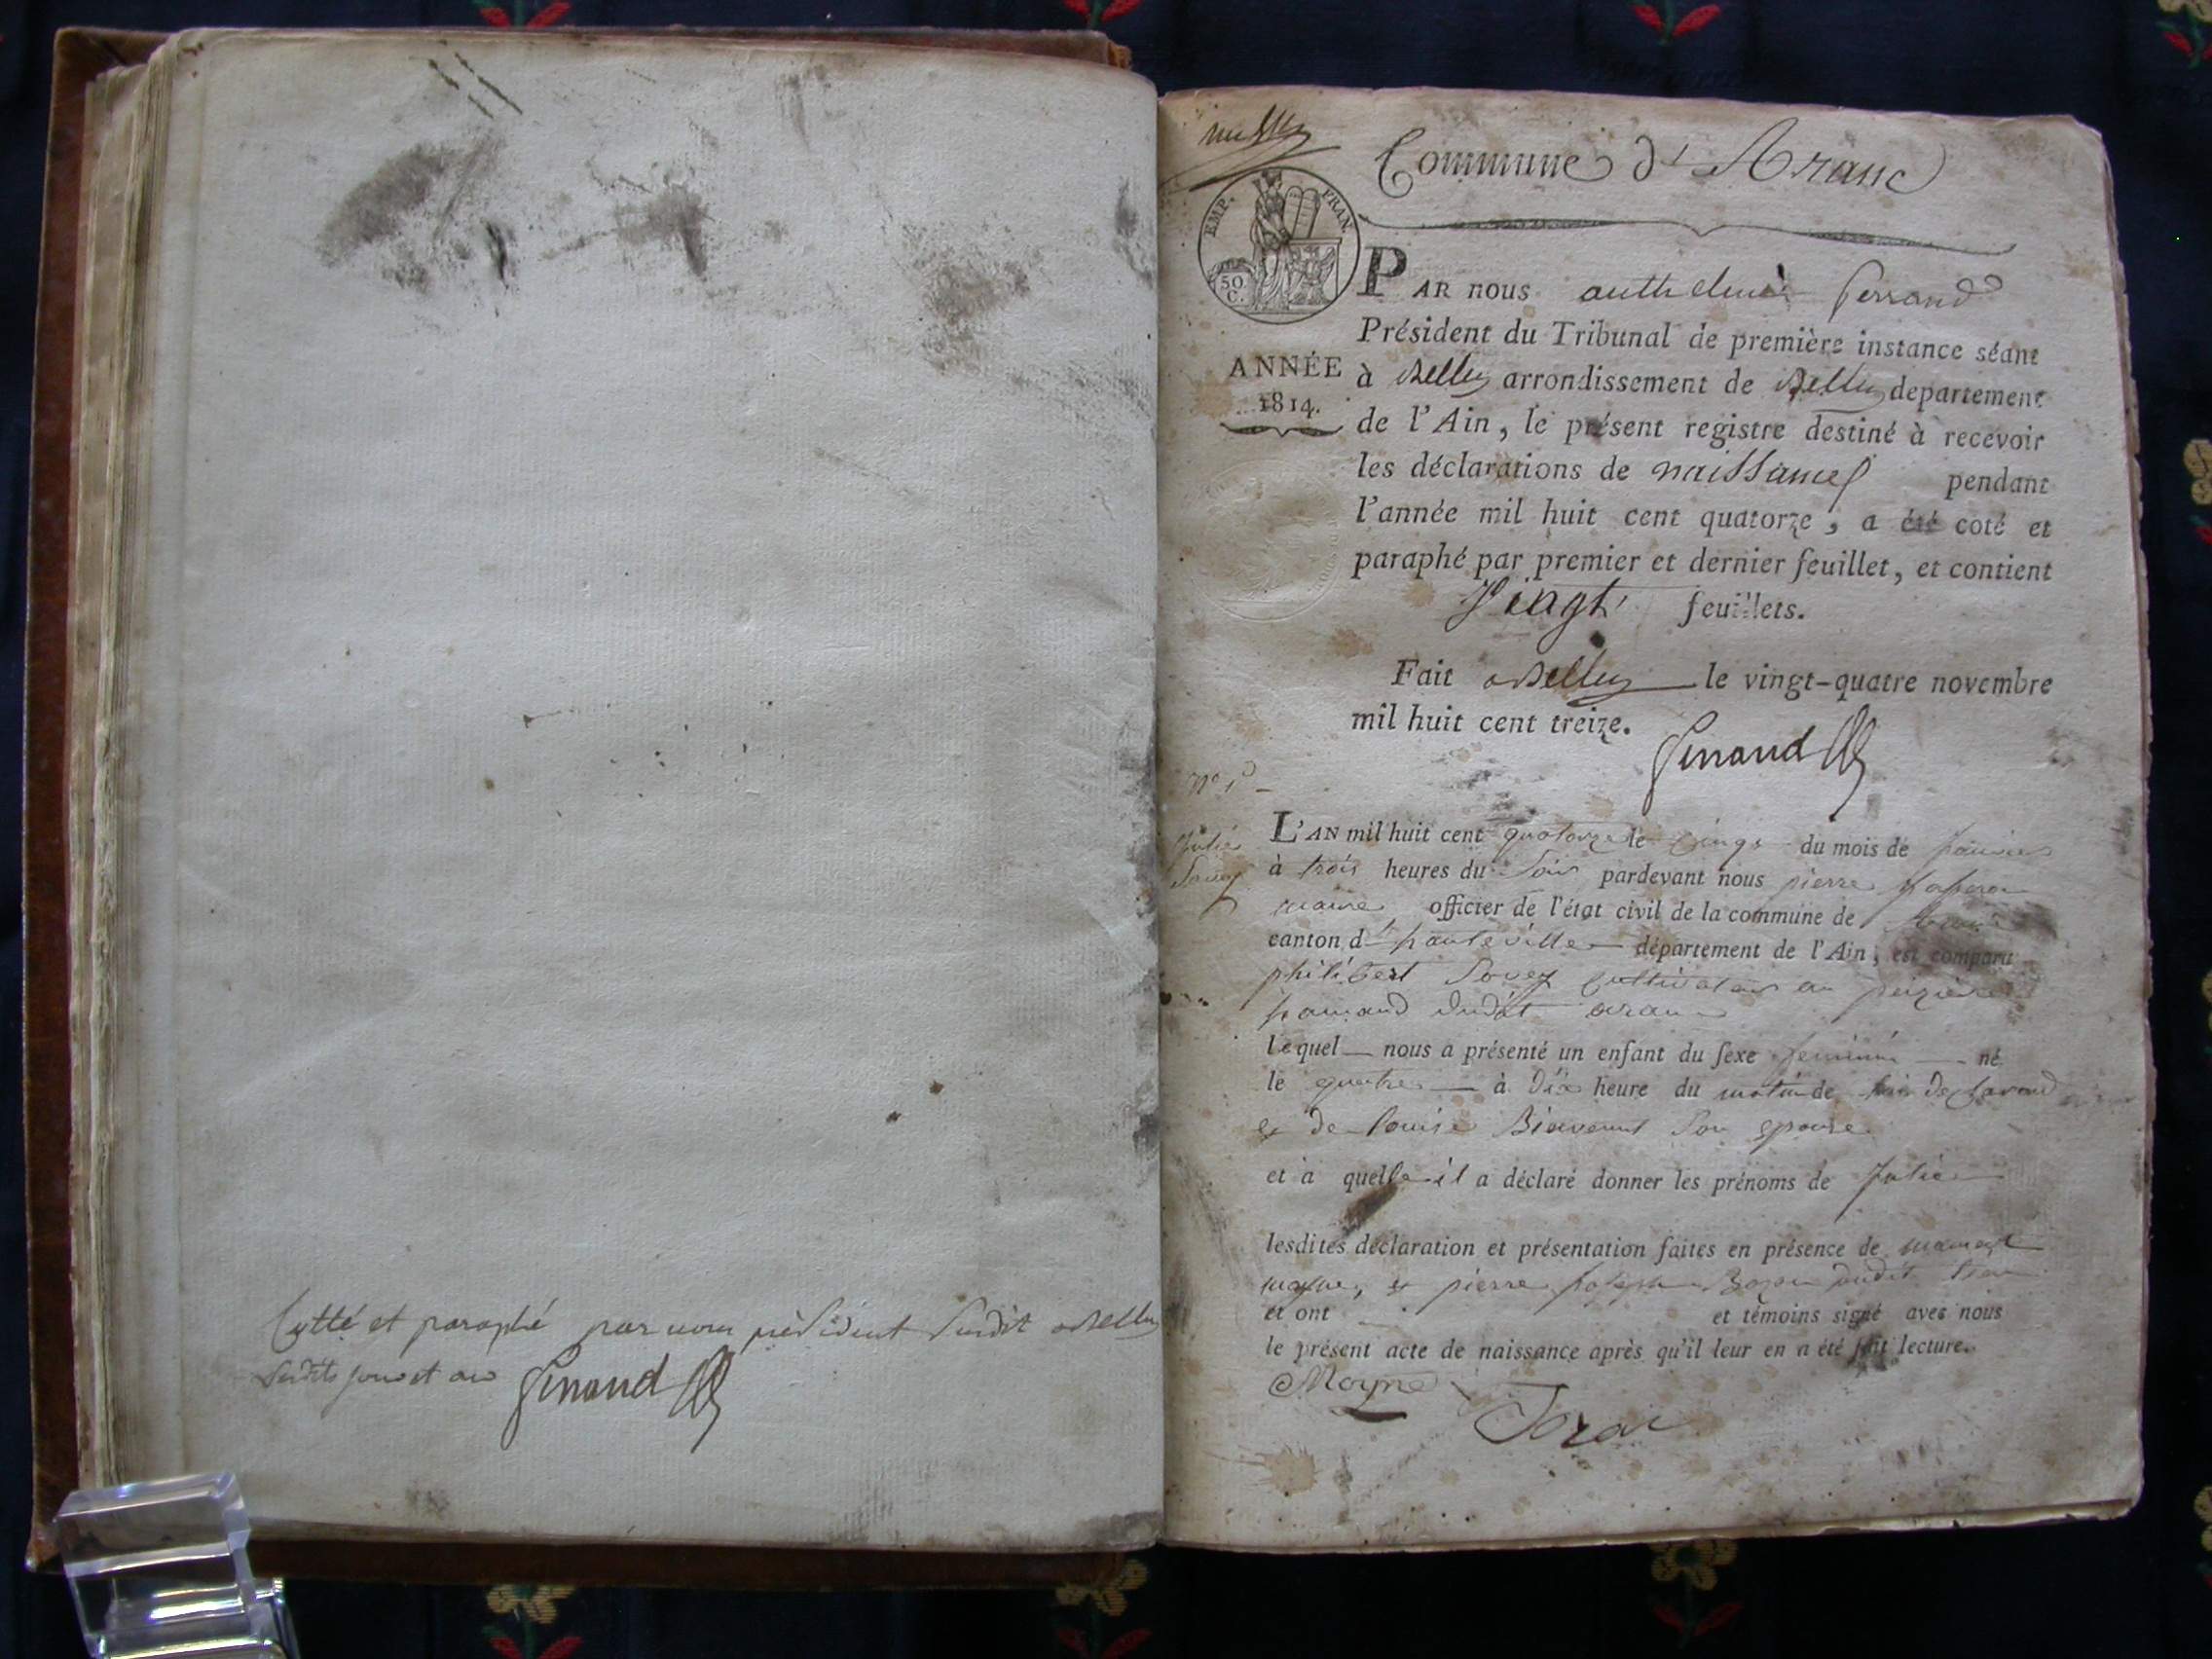 Cotté et paraphé par nous président susdit à Belley
susdits jour et an
Commune d'Aranc
EMP. FRAN.
50 C.
PAR nous anthelme ferrand
Président du Tribunal de première instance séant
ANNÉE
1814.
à Belley arrondissement de Belley departement
de l'Ain, le présent registre destiné à recevoir
les déclarations de naissances pendant
l'année mil huit cent quatorze, a été coté et
paraphé par premier et dernier feuillet, et contient
Vingt feuillets.
Fait à Belley le vingt-quatre novembre
mil huit cent treize.
ferrand
No 1
Julie
L'AN mil huit cent quatorze le cinq du mois de janvier
à trois heures du soir pardevant nous pierre
maire officier de l'état civil de la commune de
canton d'hauteville département de l'Ain, est comparu
philibert Savey cultivateur au
hamaud dudit aranc
lequel nous a présenté un enfant du sexe feminin né
le quatre à dix heure du matin de
et de louise son epouse
et à quelle il a déclaré donner les prénoms de Julie
lesdites déclaration et présentation faites en présence de
et pierre joseph dudit
et ont et témoins signé avec nous
le présent acte de naissance après qu'il leur en a été fait lecture.
Moyne